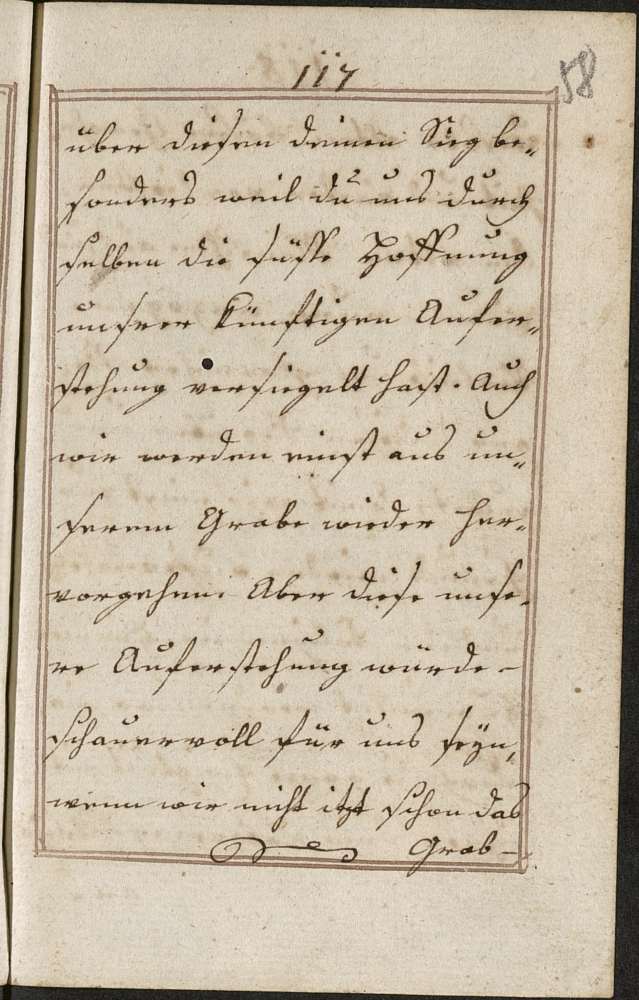 117
58
über diesen deinen Sieg be„
sonders weil du uns durch
selben die süsse Hoffnung
unserer künftigen Aufer„
stehung versiegelt hast. Auch
wir werden einst aus un„
serem Grabe wieder her„
vorgehen. Aber diese unse„
re Auferstehung würde
schauervoll für uns seyn,
wenn wir nicht itzt schon das
Grab-